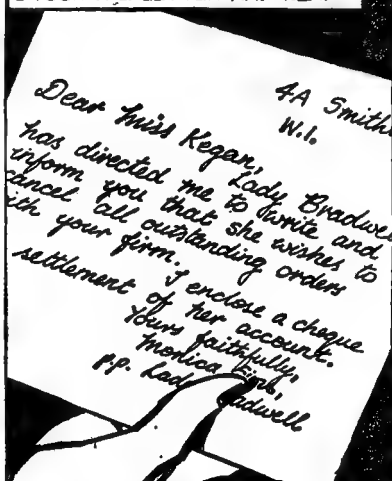 4A Smith
W.1.
Dear Miss Kegan,
Lady Bradwe
has directed me to write and
inform you that she wishes to
cancel all outstanding orders
ith your firm.
I enclose a cheque
settlement of her account.
Yours faithfully,
Monica
p.p. Lad adwell